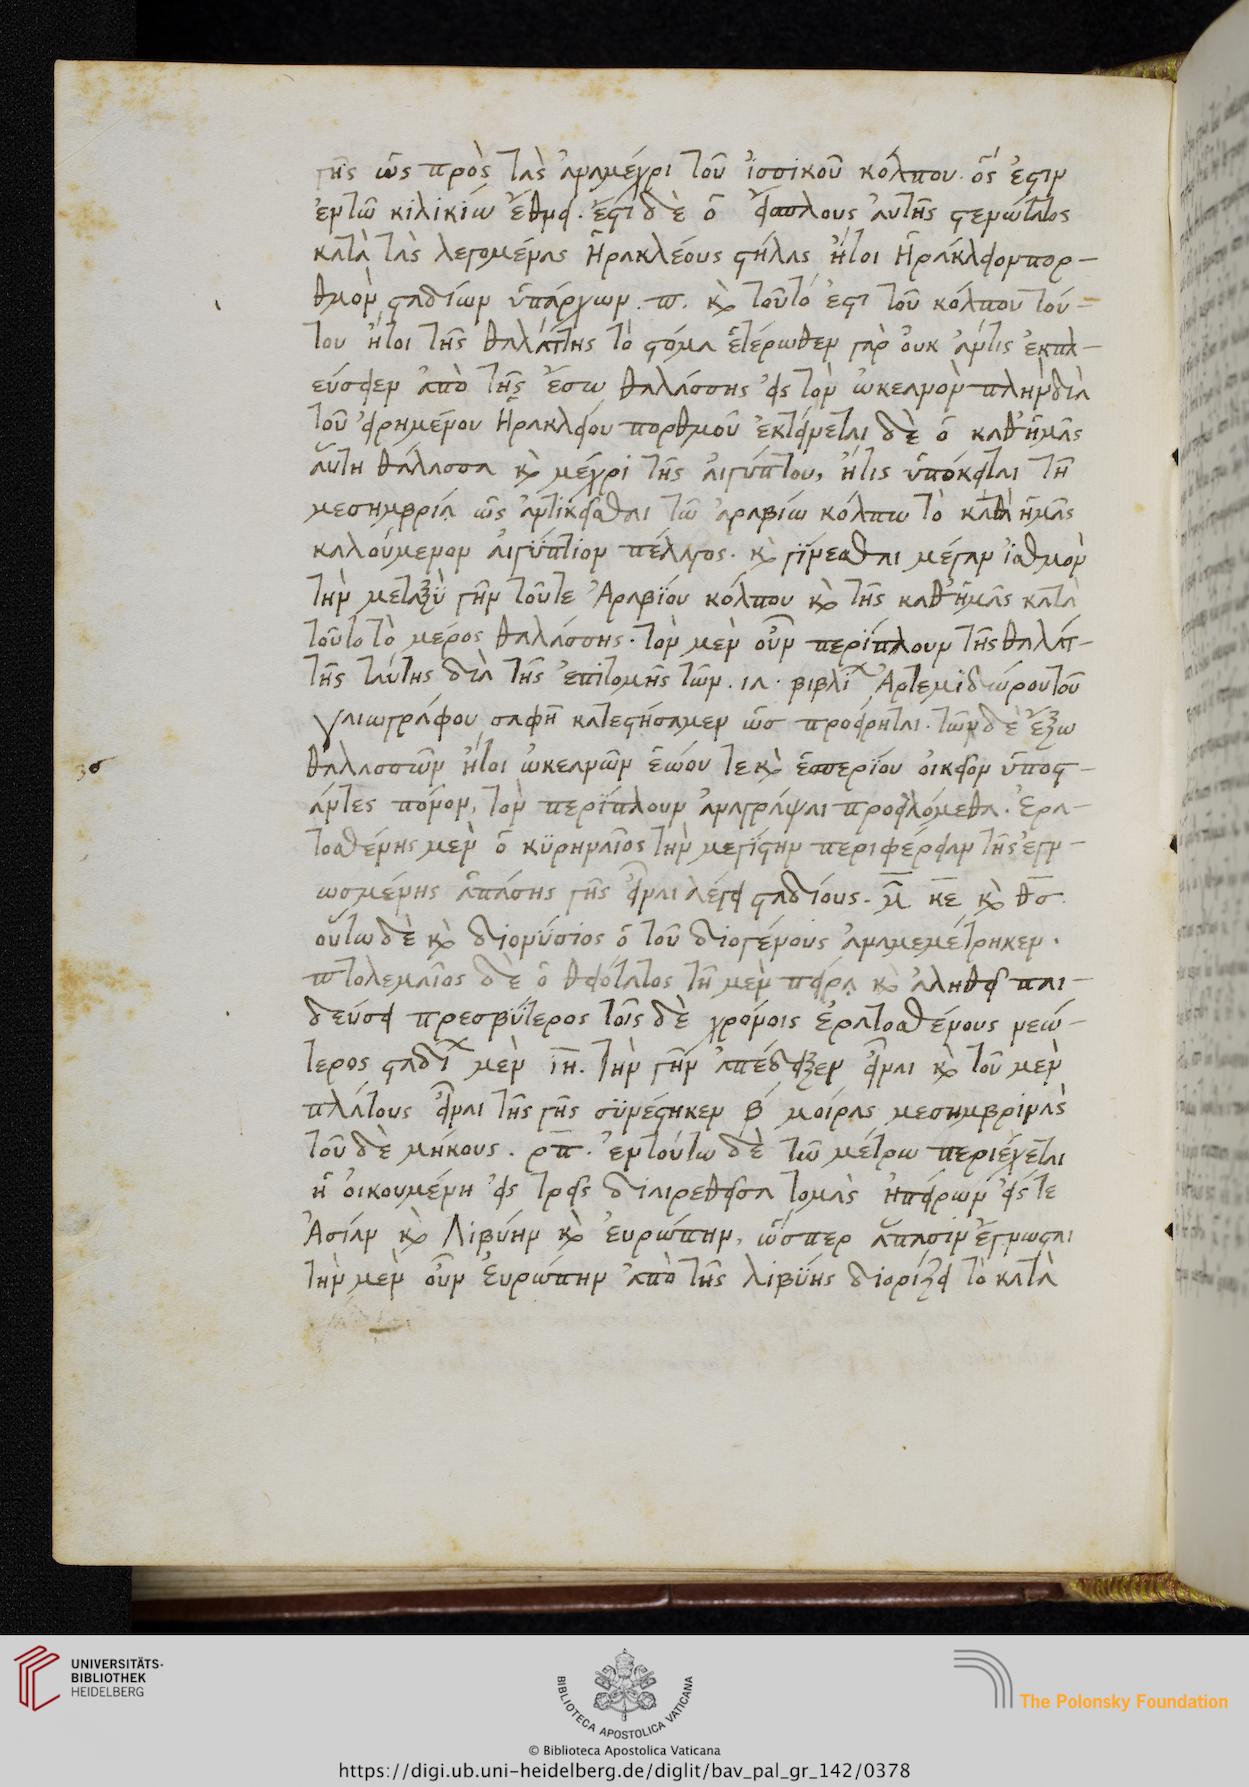 γῆς ὡς πρὸς τὰς ἀναμέχρι τοῦ ἰσσικοῦ κόλπου. ὅς ἐστιν
ἐντῶ κιλικίω ἔθνει. ἔστι δὲ ὁ εἴσπλους αὐτῆς στενώτατος
κατὰ τὰς λεγομένας Ἡρακλέους στήλας ἤτοι Ἡράκλειονπορ-
θμὸν σταδίων ὑπάρχων. π. κ̀ τοῦτό ἐστι τοῦ κόλπου τού-
του ἤτοι τῆς θαλάττης τὸ στόμα ἑτέρωθεν γὰρ οὐκ ἄντις ἐκπλ-
εύσειεν ἀπὸ τῆς ἔσω θαλάσσης εἰς τὸν ὠκεανὸν πλὴνδιὰ
τοῦ εἰρημένου Ἡρακλείου πορθμοῦ ἐκτείνεται δὲ ὁ καθ'ἡμᾶς
αὕτη θάλασσα κ̀ μέχρι τῆς αἰγύπτου, ἥτις ὑπόκειται τῆ
μεσημβρία ὡς ἀντικεῖσθαι τῶ ἀραβίω κόλπω τὸ καθ' ἡμᾶς
καλούμενον αἰγύπτιον πέλαγος. κ̀ γίνεσθαι μέγαν ἰσθμὸν
τὴν μεταξὺ γῆν τοῦτε Ἀραβίου κόλπου κ̀ τῆς καθ'ἡμᾶς κατὰ
τοῦτο τὸ μέρος θαλάσσης. τὸν μὲν οὖν περίπλουν τῆς θαλάτ-
της ταύτης διὰ τῆς ἐπιτομῆς τῶν. ια. βιβλί Ἀρτεμιδώρουτοῦ
γαιωγράφου σαφῆ κατεστήσαμεν ὡς προείρηται. τῶνδὲ ἔξω
θαλασσῶν ἤτοι ὠκεανῶν ἑώου τε κ̀ ἑσπερίου οἰκεῖον ὑποστ-
άντες πόνον, τὸν περίπλουν ἀναγράψαι προειλόμεθα. Ἐρα-
τοσθένης μὲν ὁ κυρηναῖος τὴν μεγίστην περιφέρειαν τῆς ἐγν-
ωσμένης ἁπάσης γῆς εἶναι λέγει σταδίους. μ̅ κ̅ε̅ κ̀ θ̅σ̅
οὕτωδὲ κ̀ διονύσιος ὁ τοῦ διογένους ἀναμεμέτρηκεν.
πτολεμαῖος δὲ ὁ θειότατος τῆ μὲν πείρα κ̀ ἀληθεῖ παι-
δεύσει πρεσβύτερος τοῖς δὲ χρόνοις ἐρατοσθένους νεώ-
τερος σταδί μὲν ι̅η̅. τὴν γῆν ἀπέδειξεν εἶναι κ̀ τοῦ μὲν
πλάτους εἶναι τῆς γῆς συνέστηκεν β´ μοίρας μεσημβρινὰς
τοῦ δὲ μήκους. ρ̅π̅. ἐντούτω δὲ τῶ μέτρω περιέχεται
ἡ οἰκουμένη εἰς τρεῖς διαιρεθεῖσα τομὰς ἠπείρων εἴς τε
Ἀσίαν κ̀ Λιβύην κ̀ ἐυρώπην, ὥσπερ ἅπασιν ἔγνωσται
τὴν μὲν οὖν Ἐυρώπην ἀπὸ τῆς λιβύης διορίζει τὸ κατὰ
UNIVERSITÄTS-
BIBLIOTHEK
HEIDELBERG
BIBLIOTECA APOSTOLICA VATICANA
The Polonsky Foundation
© Biblioteca Apostolica Vaticana
https://digi.ub.uni-heidelberg.de/diglit/bav_pal_gr_142/0378